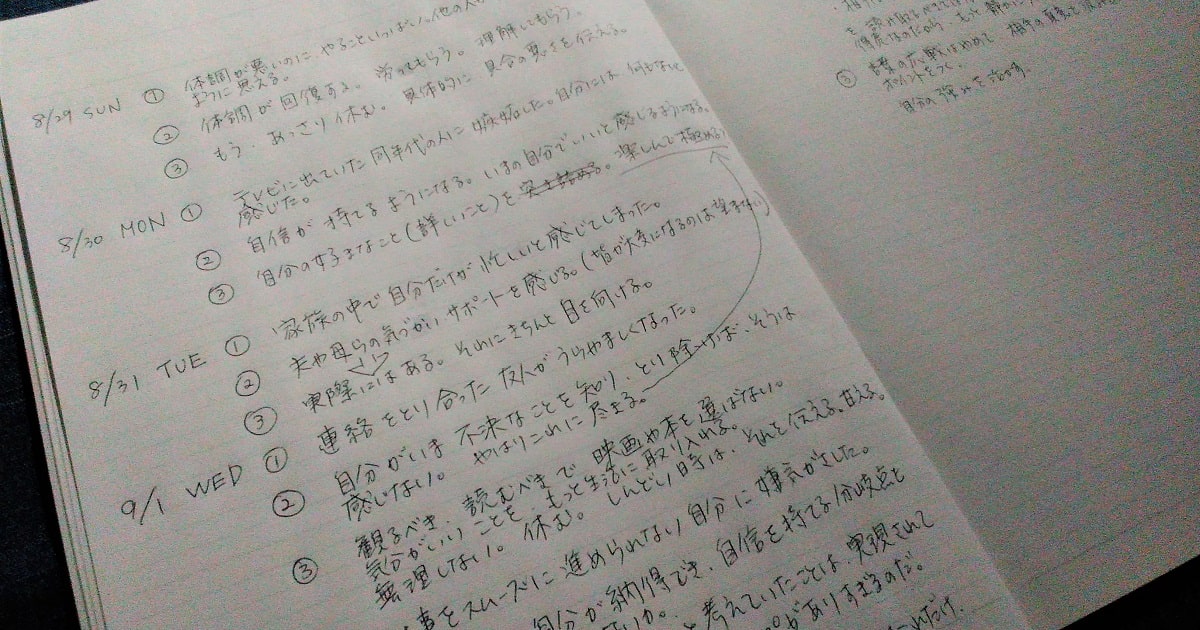 体調が悪いのに やることいっぱい。他の人が
ように思える。
8/29 SUN ①
② 体調が回復する。労ってもらう。理解してもらう。
③ もう、あっさり休む。具体的に 具合の悪さを伝える。
8/30 MON ① テレビに出ていた同年代の人に嫉妬した。自分には 何もないと
感じた。
② 自信が持てるようになる。いまの自分でいいと感じるようになる。
③ 自分の好きなこと(詳しいこと)を突き詰める。楽しんで極める
8/31 TUE ① 家族の中で自分だけが忙しいと感じてしまった。
② 夫や母らの気づかいサポートを感じる。(皆が大変になるのは望まない)
③ 実際にはある。それにきちんと目を向ける。
9/1 WED ① 連絡をとり合った友人がうらやましくなった。
② 自分がいま不快なことを知り、とり除けば、そうは
感じない。 やはりこれに尽きる。
③ 観るべき、読むべきで 映画や本を選ばない。
気分がいいことを、もっと生活に取り入れる。
無理しない。休む。しんどい時は、それを伝える。甘える。
事をスムーズに進められない自分に嫌気がさした。
自分が納得でき、自信を持てる分岐点を
と考えていたことは、実現されて
がありすぎるのだ。
③ 言葉の応戦はやめて 相手の
ポイントをつく。
自分の強みを